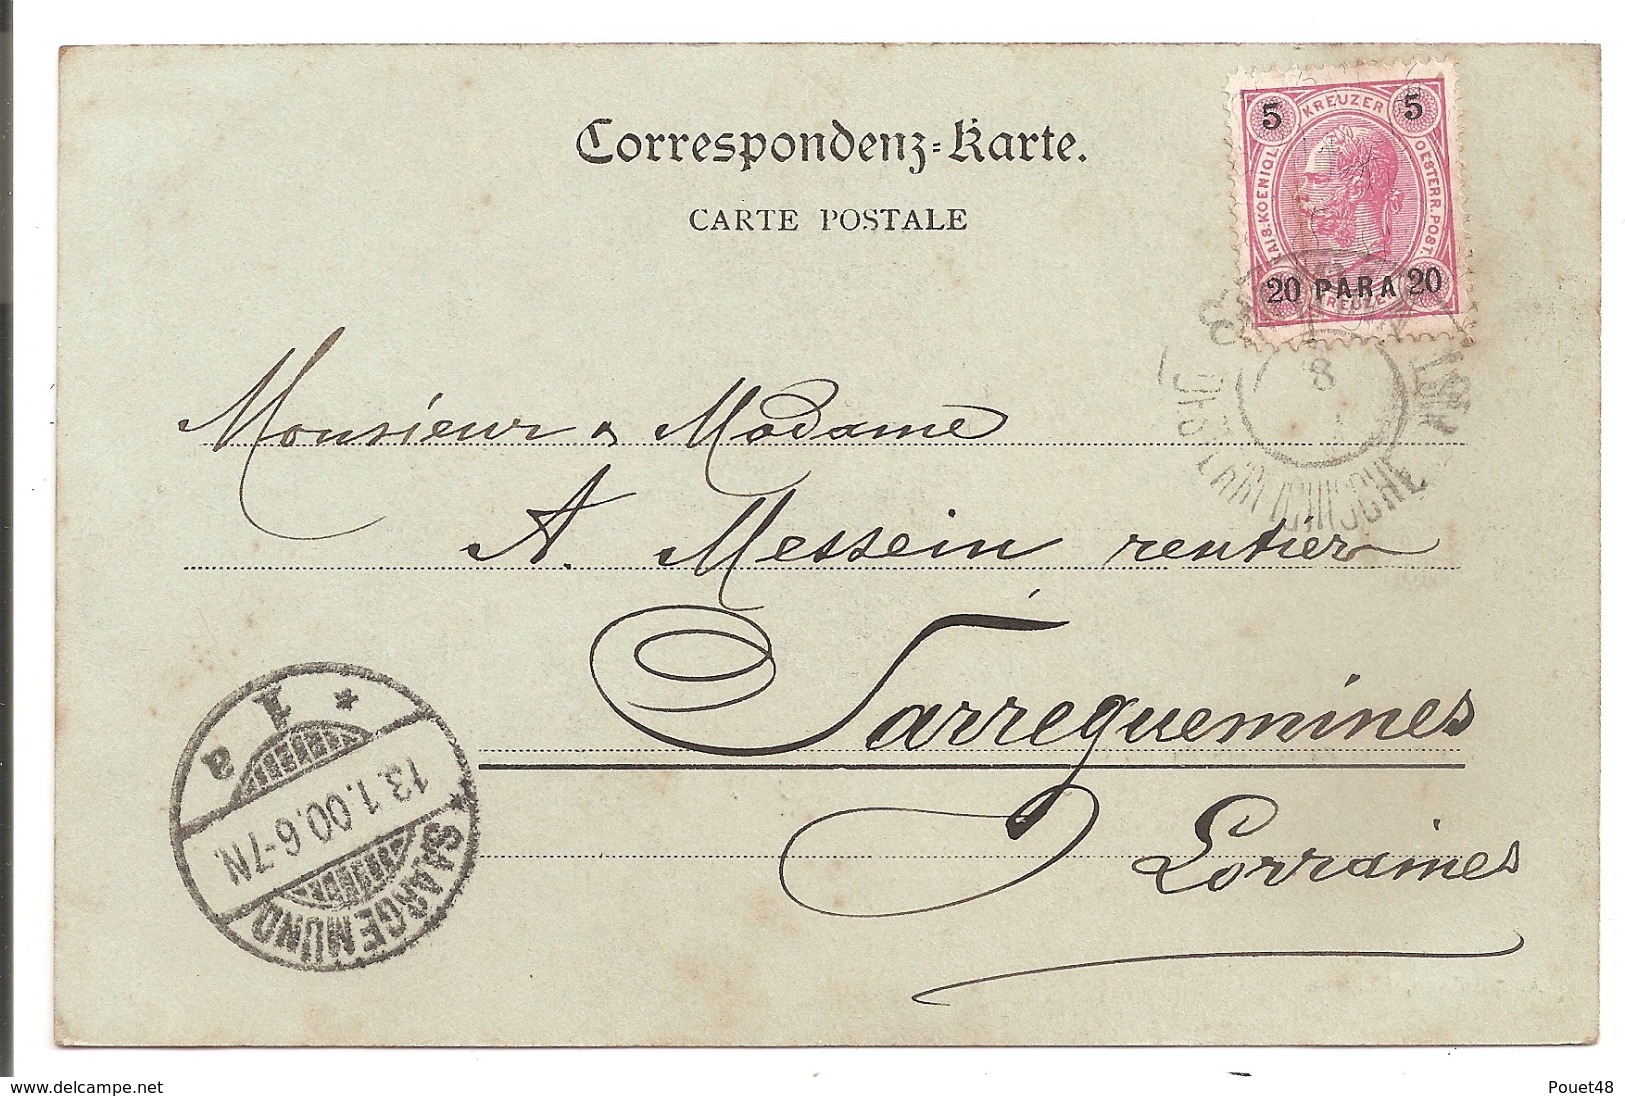 Correspondenz-Karte.
CARTE POSTALE
5 KREUZER 5
KAIS. KOENIGL. OESTERR. POST.
20 PARA 20
KREUZER
8
Monsieur & Madame
A. Messein rentier
Sarreguemines
Lorraines
a 1 *
13.1.00.6-7N.
SAARGEMUND *
www.delcampe.net
Pouet48